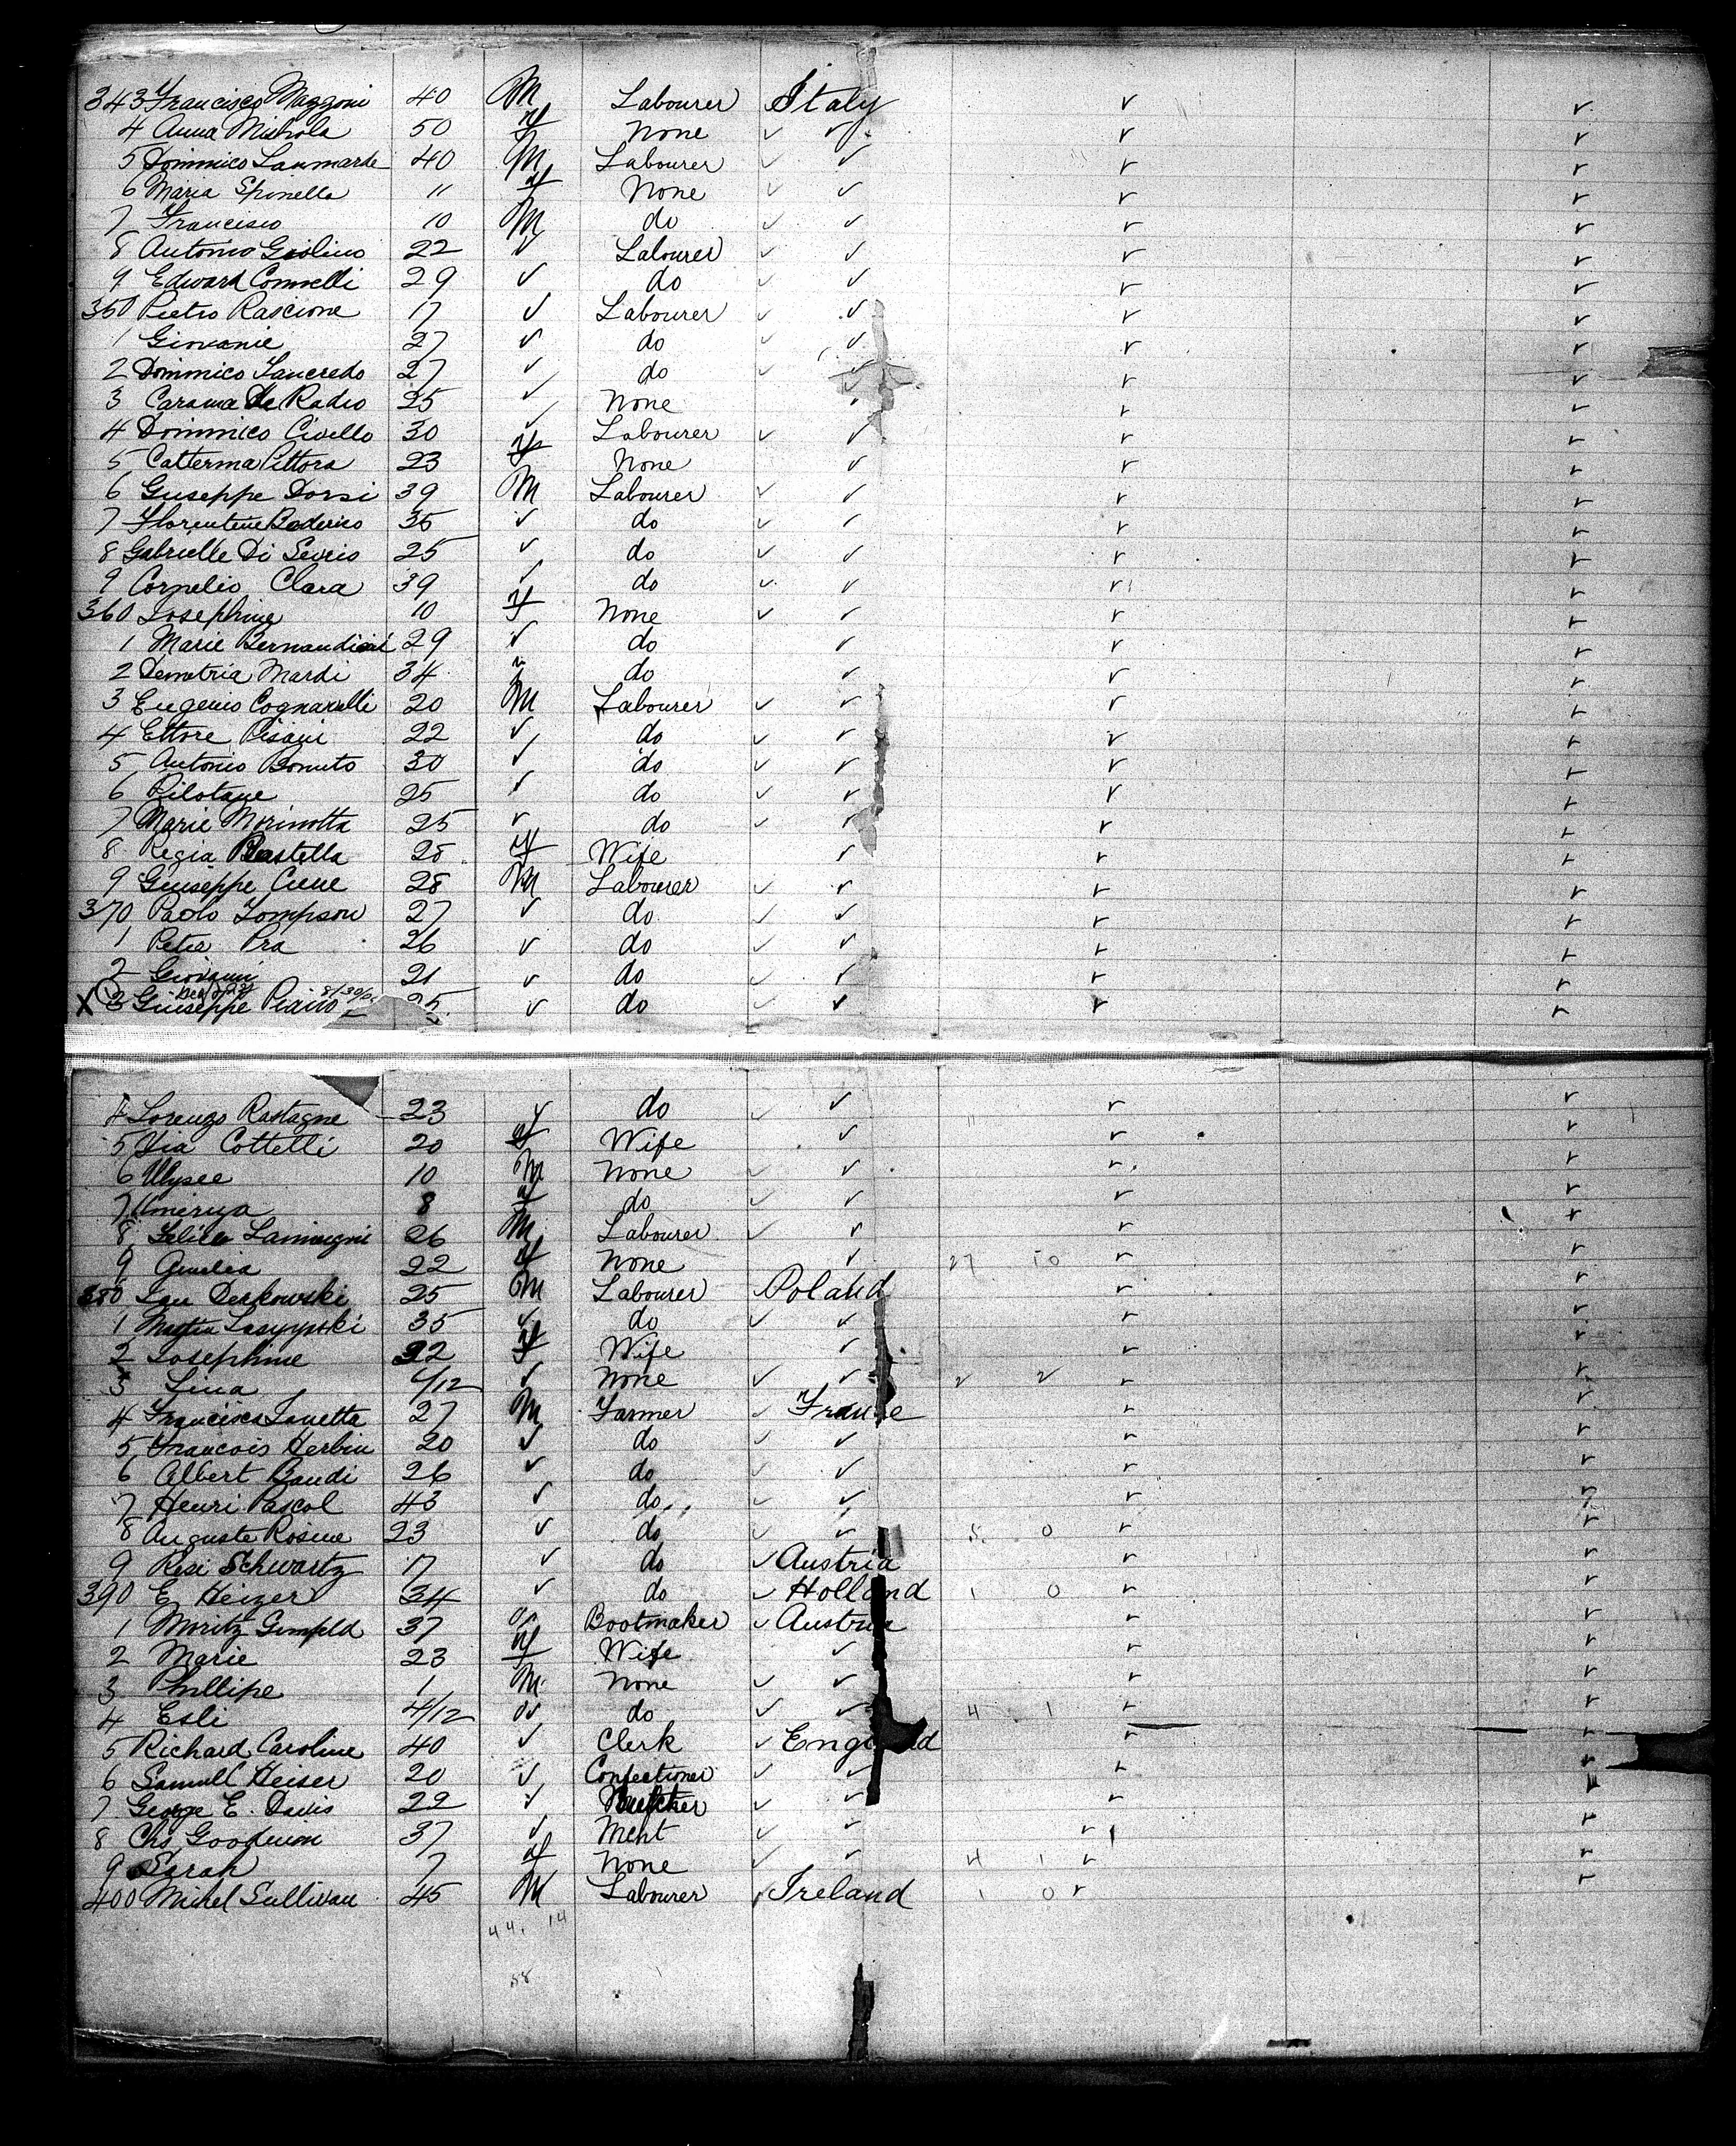 343 Francisco Maggoni 40 M Labourer Italy
4 Anna Michola 50 f None ✓ ✓
5 Dominico Lanmarde 40 M Labourer ✓
6 Maria Spinella 11 f None ✓ ✓
7 Francisco 10 M do ✓ ✓
8 Antonio Giolino 22 ✓ Labourer ✓ ✓
9 Edward Connelli 29 ✓ do ✓ ✓
350 Pietro Rascione 17 ✓ Labourer ✓ ✓
1 Giovanie 27 ✓ do ✓ ✓
2 Dominico Tancredo 27 ✓ do ✓
3 Carama De Radio 25 ✓ None
4 Dominico Civello 30 ✓ Labourer ✓ ✓
5 Catterma Pittora 23 f None ✓
6 Guseppe Dorsi 39 M Labourer ✓ ✓
7 Florentine Bederico 35 ✓ do ✓ ✓
8 Gabrielle Di Severio 25 ✓ do ✓ ✓
9 Cornelio Clara 39 ✓ do ✓ ✓
360 Josephine 10 f None ✓ ✓
1 Marie Bernandini 29 ✓ do ✓
2 Demetria Mardi 34 do ✓
3 Eugenio Cognarelli 20 M Labourer ✓ ✓
4 Ettore Pisani 22 ✓ do ✓ ✓
5 Antonio Bonuto 30 ✓ do ✓ ✓
6 Pilotaye 25 ✓ do ✓ ✓
7 Marie Morinotta 25 ✓ do ✓ ✓
8 Regia Bastella 28 f Wife ✓
9 Giuseppe Cene 28 M Labourer ✓ ✓
370 Paolo Tompson 27 ✓ do ✓ ✓
1 Peter Pra 26 ✓ do ✓ ✓
2 Giovanni 21 ✓ do ✓ ✓
X 3 Guiseppe Piaino 25 ✓ do ✓ ✓
4 Lorenzo Rastagne 23 ✓ do ✓ ✓
5 Pia Cottelli 20 f Wife ✓
6 Ulysee 10 M None ✓ ✓
7 Ameriga 8 f do ✓ ✓
8 Felice Lamirgni 26 M Labourer ✓ ✓
9 Amelia 22 f None ✓ 27 10
380 Jan Derkowski 25 M Labourer Poland
1 Martin Lasyypski 35 ✓ do ✓ ✓
2 Josephine 32 f Wife ✓
3 Lina 4/12 ✓ None ✓ ✓ 2 2
4 Francisca Lanetta 27 M Farmer ✓ France
5 Francois Herbin 20 ✓ do ✓ ✓
6 Albert Baudi 26 ✓ do ✓ ✓
7 Henri Pascol 43 ✓ do ✓ ✓
8 Auguste Rosine 23 ✓ do ✓ ✓ 5 0
9 Resi Schwartz 17 ✓ do ✓ Austria
390 E Heizer 34 ✓ do ✓ Holland 1 0
1 Moritz Gimpeld 37 Bootmaker ✓ Austria
2 Marie 23 f Wife ✓
3 Phillipe 1 M None ✓ ✓
4 Esli 4/12 do ✓ ✓ 4 1
5 Richard Caroline 40 ✓ Clerk ✓ England
6 Samull Heiser 20 ✓ Confectioner ✓ ✓
7 George E. Davis 22 ✓ Butcher ✓ ✓
8 Chs Goodwin 37 ✓ Mcht ✓ ✓
9 Sarah 7 f None ✓ ✓ 4 1
400 Michel Sullivan 45 M Labourer ✓ Ireland 1 0
44. 14
58